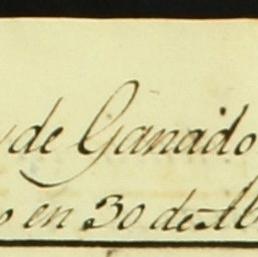 de Ganado
en 30 de